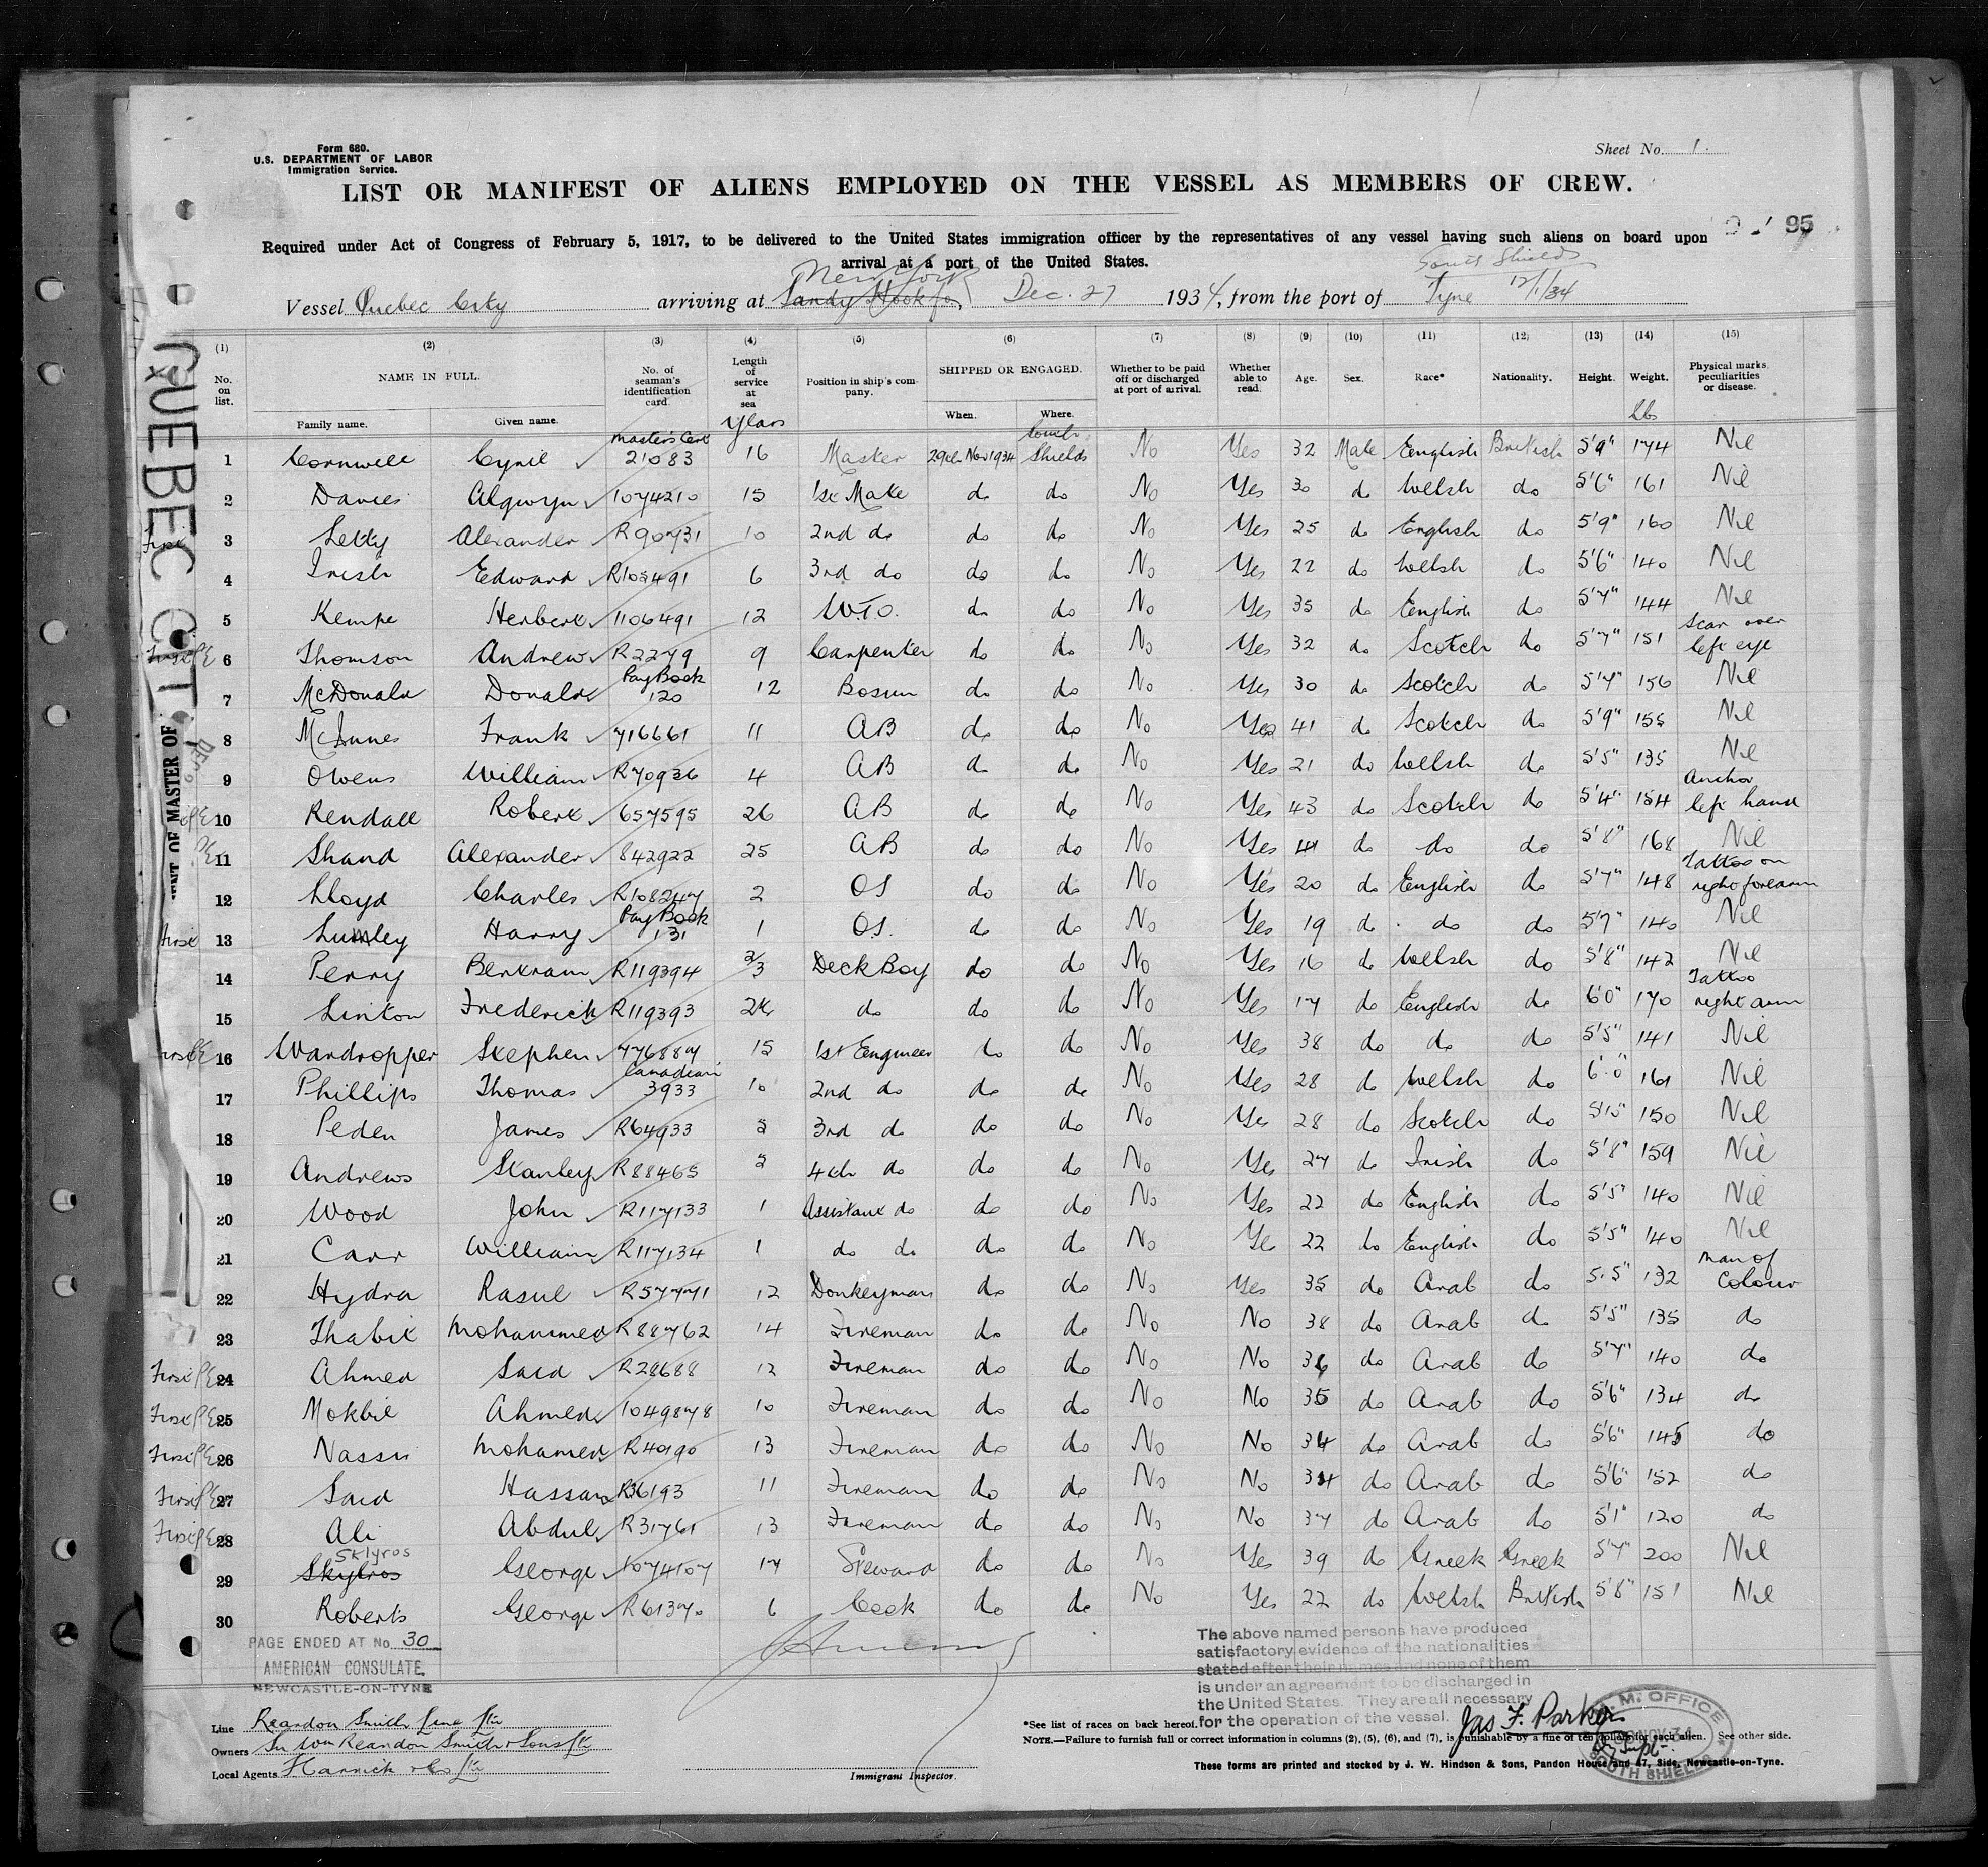 Form 680.
U.S. DEPARTMENT OF LABOR
Immigration Service.
Sheet No. 1.
LIST OR MANIFEST OF ALIENS EMPLOYED ON THE VESSEL AS MEMBERS OF CREW.
95
Required under Act of Congress of February 5, 1917, to be delivered to the United States immigration officer by the representatives of any vessel having such aliens on board upon
arrival at a port of the United States.
New York South Shields
Vessel Quebec City arriving at Sandy Hook fo, Dec. 27 1934, from the port of Tyne 12/1/34
(1) (2) (3) (4) (5) (6) (7) (8) (9) (10) (11) (12) (13) (14) (15)
No. on list. NAME IN FULL. No. of seaman's identification card. Length of service at sea Position in ship's company. SHIPPED OR ENGAGED. Whether to be paid off or discharged at port of arrival. Whether able to read. Age. Sex. Race* Nationality. Height. Weight. Physical marks, peculiarities or disease.
Family name. Given name. years When. Where. lbs
1 Cornwell Cyril Masters Cert 21083 16 Master 29th Nov 1934 South Shields No Yes 32 Male English British 5'9" 174 Nil
2 Davies Algwyn 1074210 15 1st Mate do do No Yes 30 do Welsh do 5'6" 161 Nil
First 3 Letty Alexander R90731 10 2nd do do do No Yes 25 do English do 5'9" 160 Nil
4 Irish Edward R105491 6 3rd do do do No Yes 22 do Welsh do 5'6" 140 Nil
5 Kempe Herbert 1106491 12 W.T.O. do do No Yes 35 do English do 5'7" 144 Nil
First PE 6 Thomson Andrew R2279 9 Carpenter do do No Yes 32 do Scotch do 5'7" 151 Scar over left eye
7 McDonald Donald Pay Book 120 12 Bosun do do No Yes 30 do Scotch do 5'7" 156 Nil
8 McInnes Frank 716661 11 AB do do No Yes 41 do Scotch do 5'9" 155 Nil
9 Owens William R70936 4 AB do do No Yes 21 do Welsh do 5'5" 135 Nil
PE 10 Rendall Robert 657595 26 AB do do No Yes 43 do Scotch do 5'4" 154 Anchor left hand
PE 11 Shand Alexander 842922 25 AB do do No Yes 41 do do do 5'8" 168 Nil
12 Lloyd Charles R108247 2 OS do do No Yes 20 do English do 5'7" 148 Tattoo on right forearm
First 13 Lumley Harry Pay Book 131 1 O.S. do do No Yes 19 do do do 5'7" 140 Nil
14 Perry Bertram R119394 2/3 Deck Boy do do No Yes 16 do Welsh do 5'8" 142 Nil
15 Linton Frederick R119393 do do do No Yes 17 do English do 6'0" 170 Tattoo right arm
First PE 16 Wardropper Stephen 776887 15 1st Engineer do do No Yes 38 do do do 5'5" 141 Nil
17 Phillips Thomas Canadian 3933 10 2nd do do do No Yes 28 do Welsh do 6'0" 161 Nil
18 Peden James R64933 5 3rd do do do No Yes 28 do Scotch do 5'10" 150 Nil
19 Andrews Stanley R88465 4th do do do No Yes 27 do Irish do 5'8" 159 Nil
20 Wood John R117133 1 Assistant do do do No Yes 22 do English do 5'5" 140 Nil
21 Carr William R117134 1 do do do do No Yes 22 do English do 5'5" 140 Nil
22 Hydra Rasul R57771 12 Donkeyman do do No Yes 35 do Arab do 5'5" 132 Man of Colour
23 Thabit Mohammed R88762 14 Fireman do do No No 38 do Arab do 5'5" 135 do
First PE 24 Ahmed Said R28688 12 Fireman do do No No 36 do Arab do 5'7" 140 do
First PE 25 Mokbil Ahmed 1049878 10 Fireman do do No No 35 do Arab do 5'6" 134 do
First PE 26 Nassir Mohamed R40190 13 Fireman do do No No 34 do Arab do 5'6" 145 do
First PE 27 Said Hassan R36193 11 Fireman do do No No 34 do Arab do 5'6" 152 do
First PE 28 Ali Abdul R31761 13 Fireman do do No No 37 do Arab do 5'1" 120 do
Sklyros
29 Skylros George 1074107 17 Steward do do No Yes 39 do Greek Greek 5'7" 200 Nil
30 Roberts George R61370 6 Cook do do No Yes 22 do Welsh British 5'8" 151 Nil
PAGE ENDED AT No. 30
AMERICAN CONSULATE,
NEWCASTLE-ON-TYNE
The above named persons have produced
satisfactory evidence of the nationalities
stated after their names and none of them
is under an agreement to be discharged in
the United States. They are all necessary
for the operation of the vessel.
Jas F. Parker
Dy Supt
M.M. OFFICE
NOV 34
SOUTH SHIELDS
Line Reardon Smith Line Ltd
Owners Sir Wm Reardon Smith & Sons Ltd
Local Agents Harrick & Co Ltd
Immigrant Inspector.
*See list of races on back hereof.
NOTE.—Failure to furnish full or correct information in columns (2), (5), (6), and (7), is punishable by a fine of ten dollars for each alien. See other side.
These forms are printed and stocked by J. W. Hindson & Sons, Pandon House and 47, Side, Newcastle-on-Tyne.
QUEBEC CIT
MENT OF MASTER OF
DEC